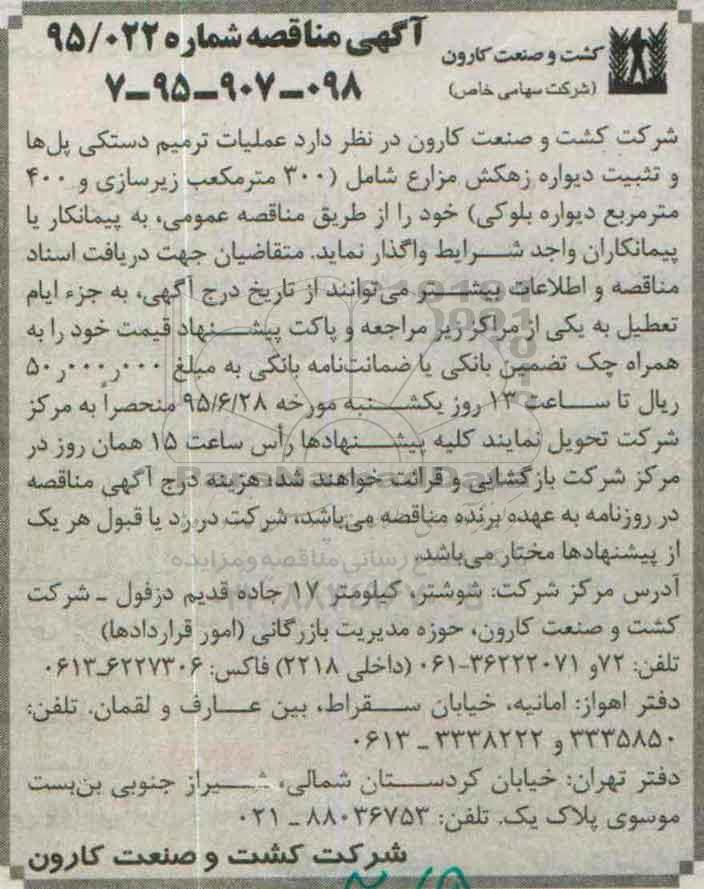 آگهی مناقصه شماره ۹۵/۰۲۲
۷-۹۵-۹۰۷-۰۹۸
کشت و صنعت کارون
(شرکت سهامی خاص)
شرکت کشت و صنعت کارون در نظر دارد عملیات ترمیم دستکی پل‌ها
و تثبیت دیواره زهکش مزارع شامل (۳۰۰ مترمکعب زیرسازی و ۴۰۰
مترمربع دیواره بلوکی) خود را از طریق مناقصه عمومی، به پیمانکار یا
پیمانکاران واجد شرایط واگذار نماید. متقاضیان جهت دریافت اسناد
مناقصه و اطلاعات بیشتر می‌توانند از تاریخ درج آگهی، به جزء ایام
تعطیل به یکی از مراکز زیر مراجعه و پاکت پیشنهاد قیمت خود را به
همراه چک تضمین بانکی یا ضمانت‌نامه بانکی به مبلغ ۵۰ر۰۰۰ر۰۰۰
ریال تا ساعت ۱۳ روز یکشنبه مورخه ۹۵/۶/۲۸ منحصراً به مرکز
شرکت تحویل نمایند کلیه پیشنهادها رأس ساعت ۱۵ همان روز در
مرکز شرکت بازگشایی و قرائت خواهند شد، هزینه درج آگهی مناقصه
در روزنامه به عهده برنده مناقصه می‌باشد، شرکت در رد یا قبول هر یک
از پیشنهادها مختار می‌باشد.
آدرس مرکز شرکت: شوشتر، کیلومتر ۱۷ جاده قدیم دزفول ـ شرکت
کشت و صنعت کارون، حوزه مدیریت بازرگانی (امور قراردادها)
تلفن: ۷۲و ۳۶۲۲۲۰۷۱-۰۶۱ (داخلی ۲۲۱۸) فاکس: ۶۲۲۷۳۰۶-۰۶۱۳
دفتر اهواز: امانیه، خیابان سقراط، بین عارف و لقمان. تلفن:
۳۳۳۵۸۵۰ و ۳۳۳۸۲۲۲ ـ ۰۶۱۳
دفتر تهران: خیابان کردستان شمالی، شیراز جنوبی بن‌بست
موسوی پلاک یک. تلفن: ۸۸۰۳۶۷۵۳ ـ ۰۲۱
شرکت کشت و صنعت کارون